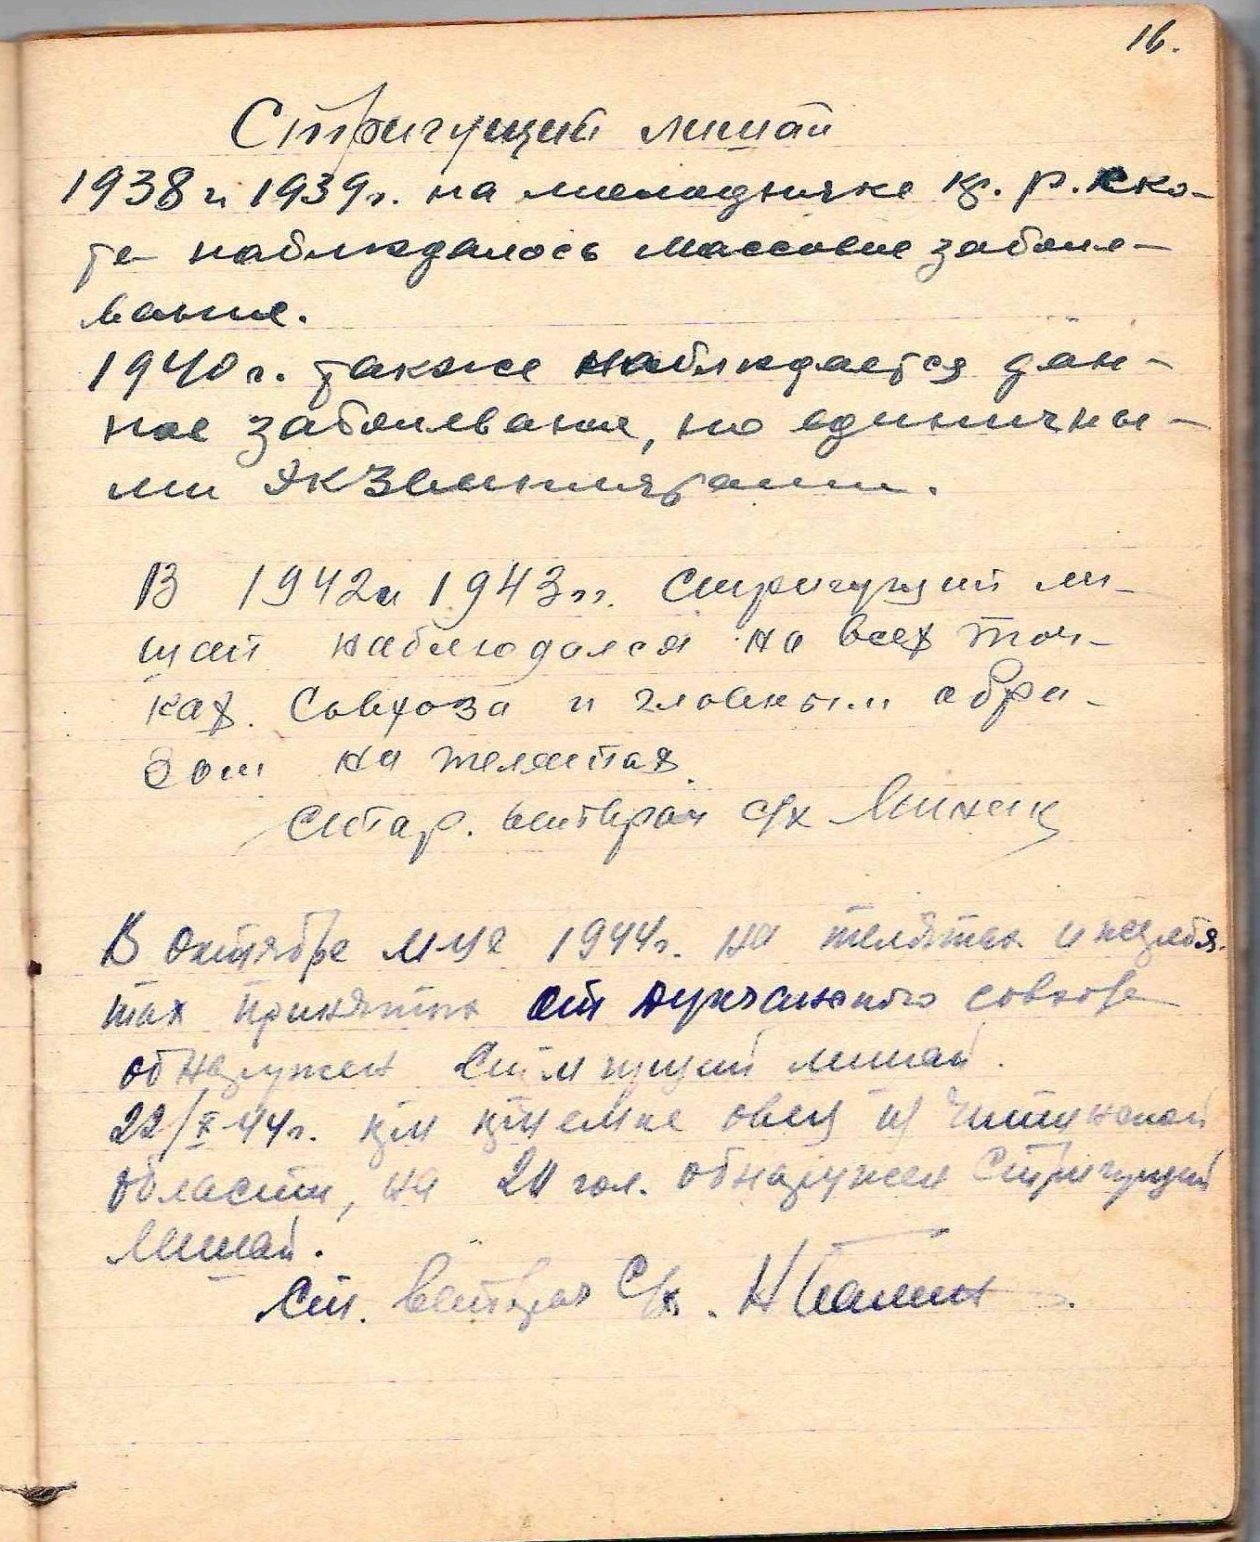 16.
Стригущий лишай
1938 и 1939г. на молодняке кр. р. ско-
те наблюдалось массовое заболе-
вание.
1940 г. также наблюдается дан-
ное заболевание, но единичны-
ми экземплярами.
В 1942 и 1943 гг. стригущий ли-
шай наблюдался на всех точ-
ках совхоза и главным обра-
зом на телятах.
Стар. ветврач с/х
В октябре м-це 1944г. на телятах и жеребя-
тах принятых от совхоза
обнаружен стригущий лишай.
22/X-44г. при приемке овец из Читинской
области, на 20 гол. обнаружен стригущий
лишай.
Ст. ветврач С/х.